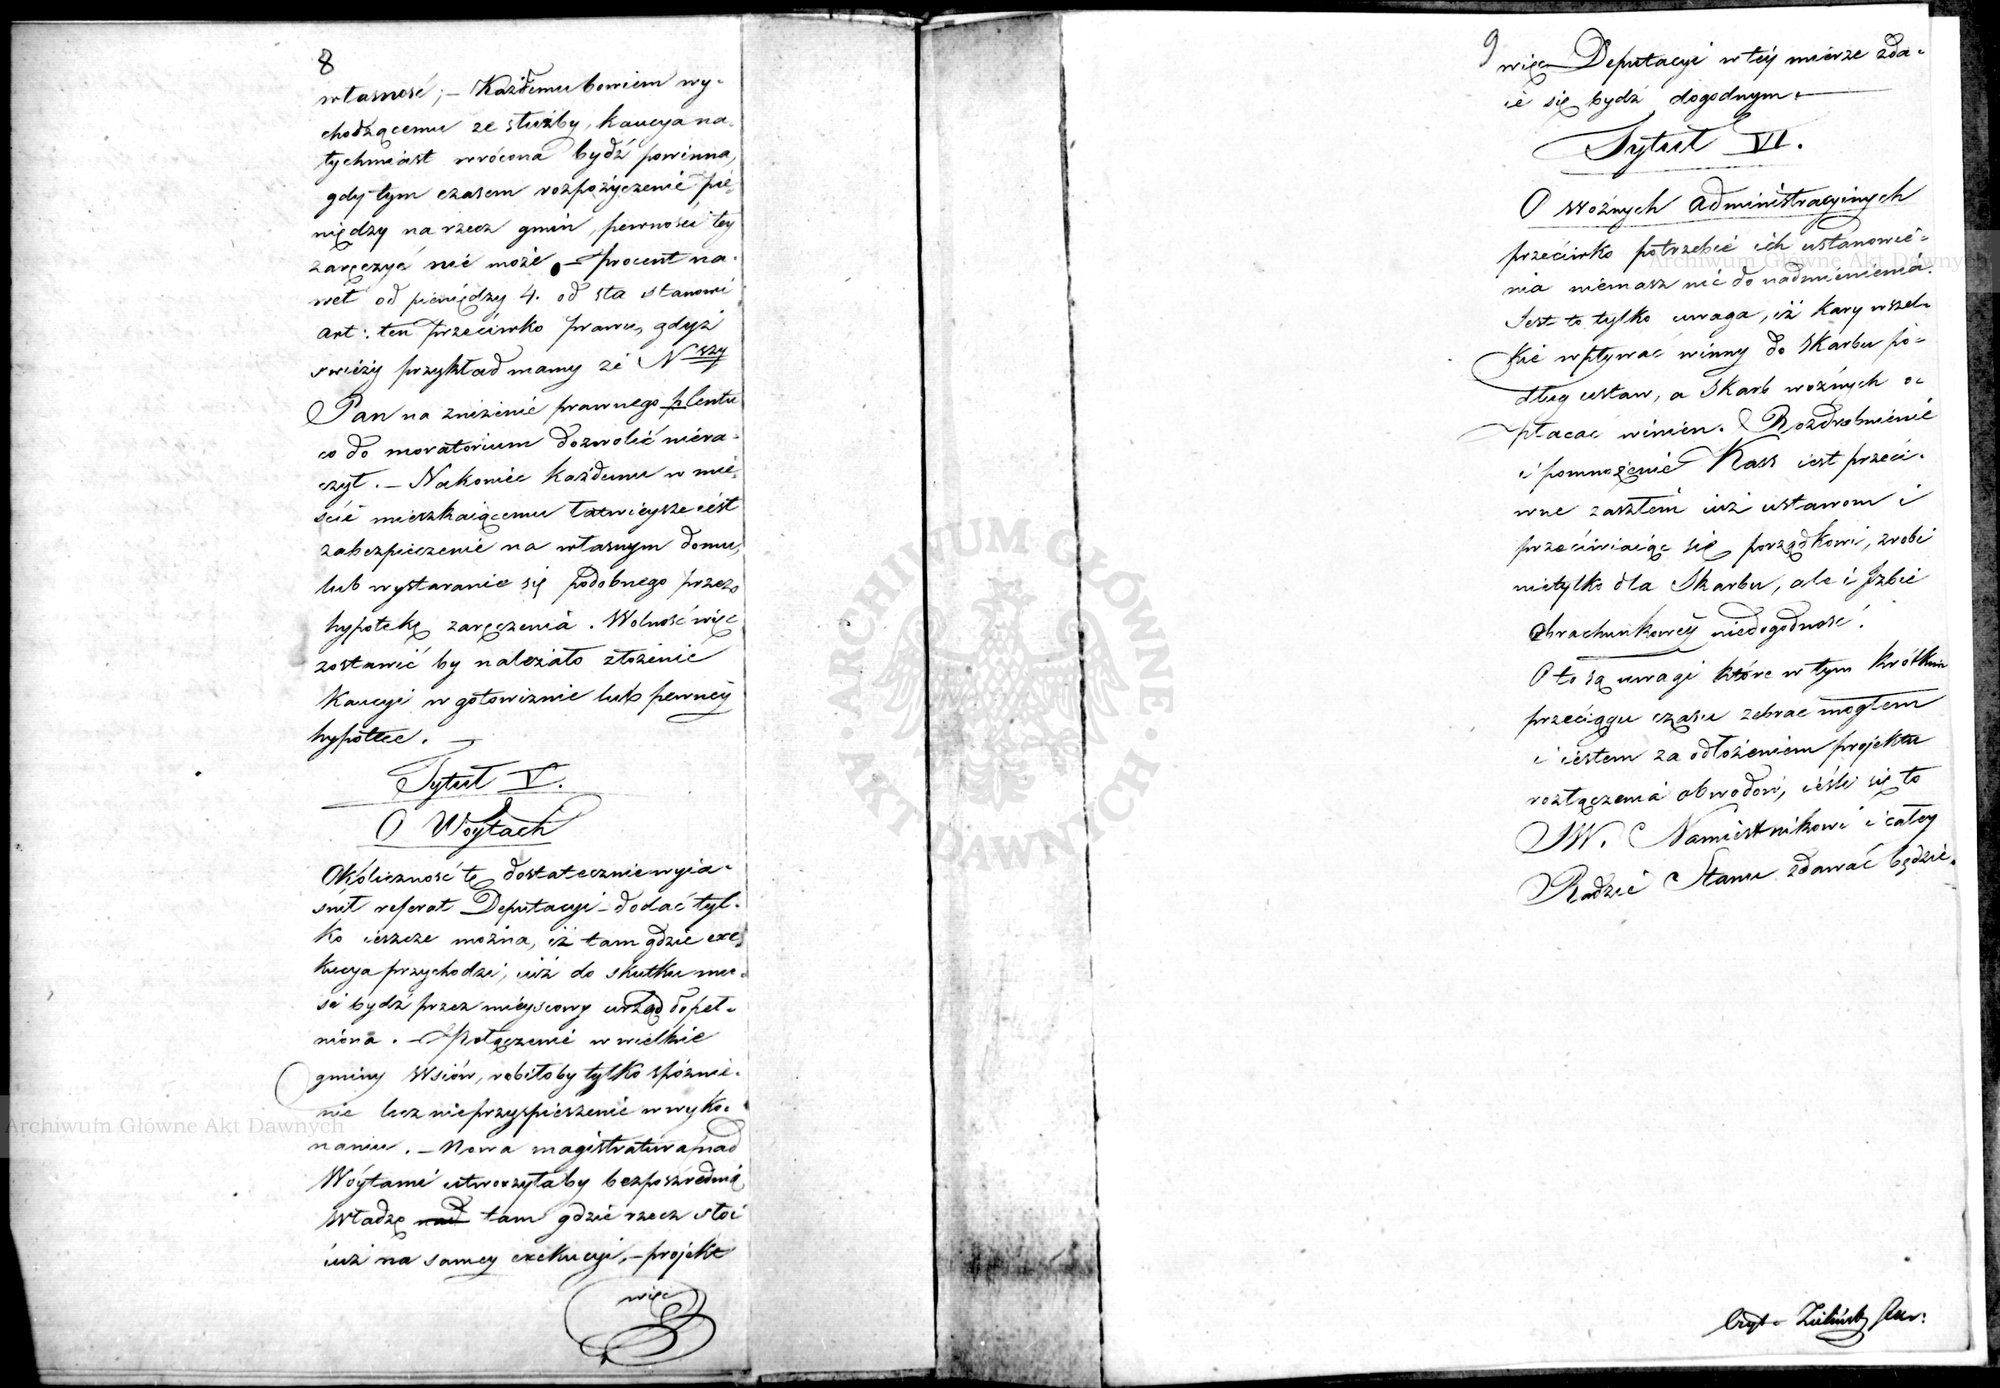 8
własność; – Każdemu bowiem wy-
chodzącemu ze służby, kaucya na-
tychmiast wrócona bydź powinna,
gdy tym czasem rozpożyczenie pie-
niędzy na rzecz gmin, pewności tey
zaręczyć nie może. – Procent na-
wet od pieniędzy 4. od sta stanowi
art: ten przeciwko prawu, gdyż
swieży przykład mamy że N szy
Pan na zniżenie prawnego plentu
co do moratorium dozwolić niera-
czył. – Nakoniec każdemu w mie-
ście mieszkaiącemu łatwieysze iest
zabezpieczenie na własnym domu,
lub wystaranie się podobnego przez
hypotekę zaręczenia. Wolność więc
zostawić by należało złożenie
Kaucyi w gotowiznie lub pewney
hypotece. –
Tytuł V.
O Woytach
Okoliczność tę dostatecznie wyia-
śnił referat Deputacyi – dodać tyl-
ko ieszcze można, iż tam gdzie exe-
kucya przychodzi, iuż do skutku mu-
si bydź przez mieyscowy urząd dopeł-
niona. – Połączenie w wielkie
gminy Wsiów, robiłoby tylko spóźnie-
nie lecz nieprzyspieszenie w wyko-
naniu. – Nowa magistratura nad
Wóytami utworzyłaby bezpośrednią
Władzę nad tam gdzie rzecz stoi
iuż na samey exekucyi, – projekt
więc
9
więc Deputacyi w téy mierze zda-
ie się bydź dogodnym. –
Tytuł VI.
O Woźnych Administracyinych
przeciwko potrzebie ich ustanowie-
nia niemasz nic do nadmienienia.
Jest to tylko uwaga, iż kary wszel-
kie wpływać winny do Skarbu po-
dług ustaw, a Skarb woźnych o-
płacać winien. Rozdrobnienie
i pomnożenie Kass iest przeci-
wne zaszłem iuż ustawom i
przeciwiaiąc się porządkowi, zrobi
nietylko dla Skarbu, ale i Izbie
Obrachunkowéy niedogodność.
Oto są uwagi które w tym krótkim
przeciągu czasu zebrać mogłem
i iestem za odłożeniem projektu
rozłączenia obwodów, ieśli się to
JW. Namiestnikowi i całey
Radzie Stanu zdawać będzie.
Czyt – Zieliński
Archiwum Główne Akt Dawnych
Archiwum Główne Akt Dawnych
· ARCHIWUM GŁÓWNE · AKT DAWNYCH